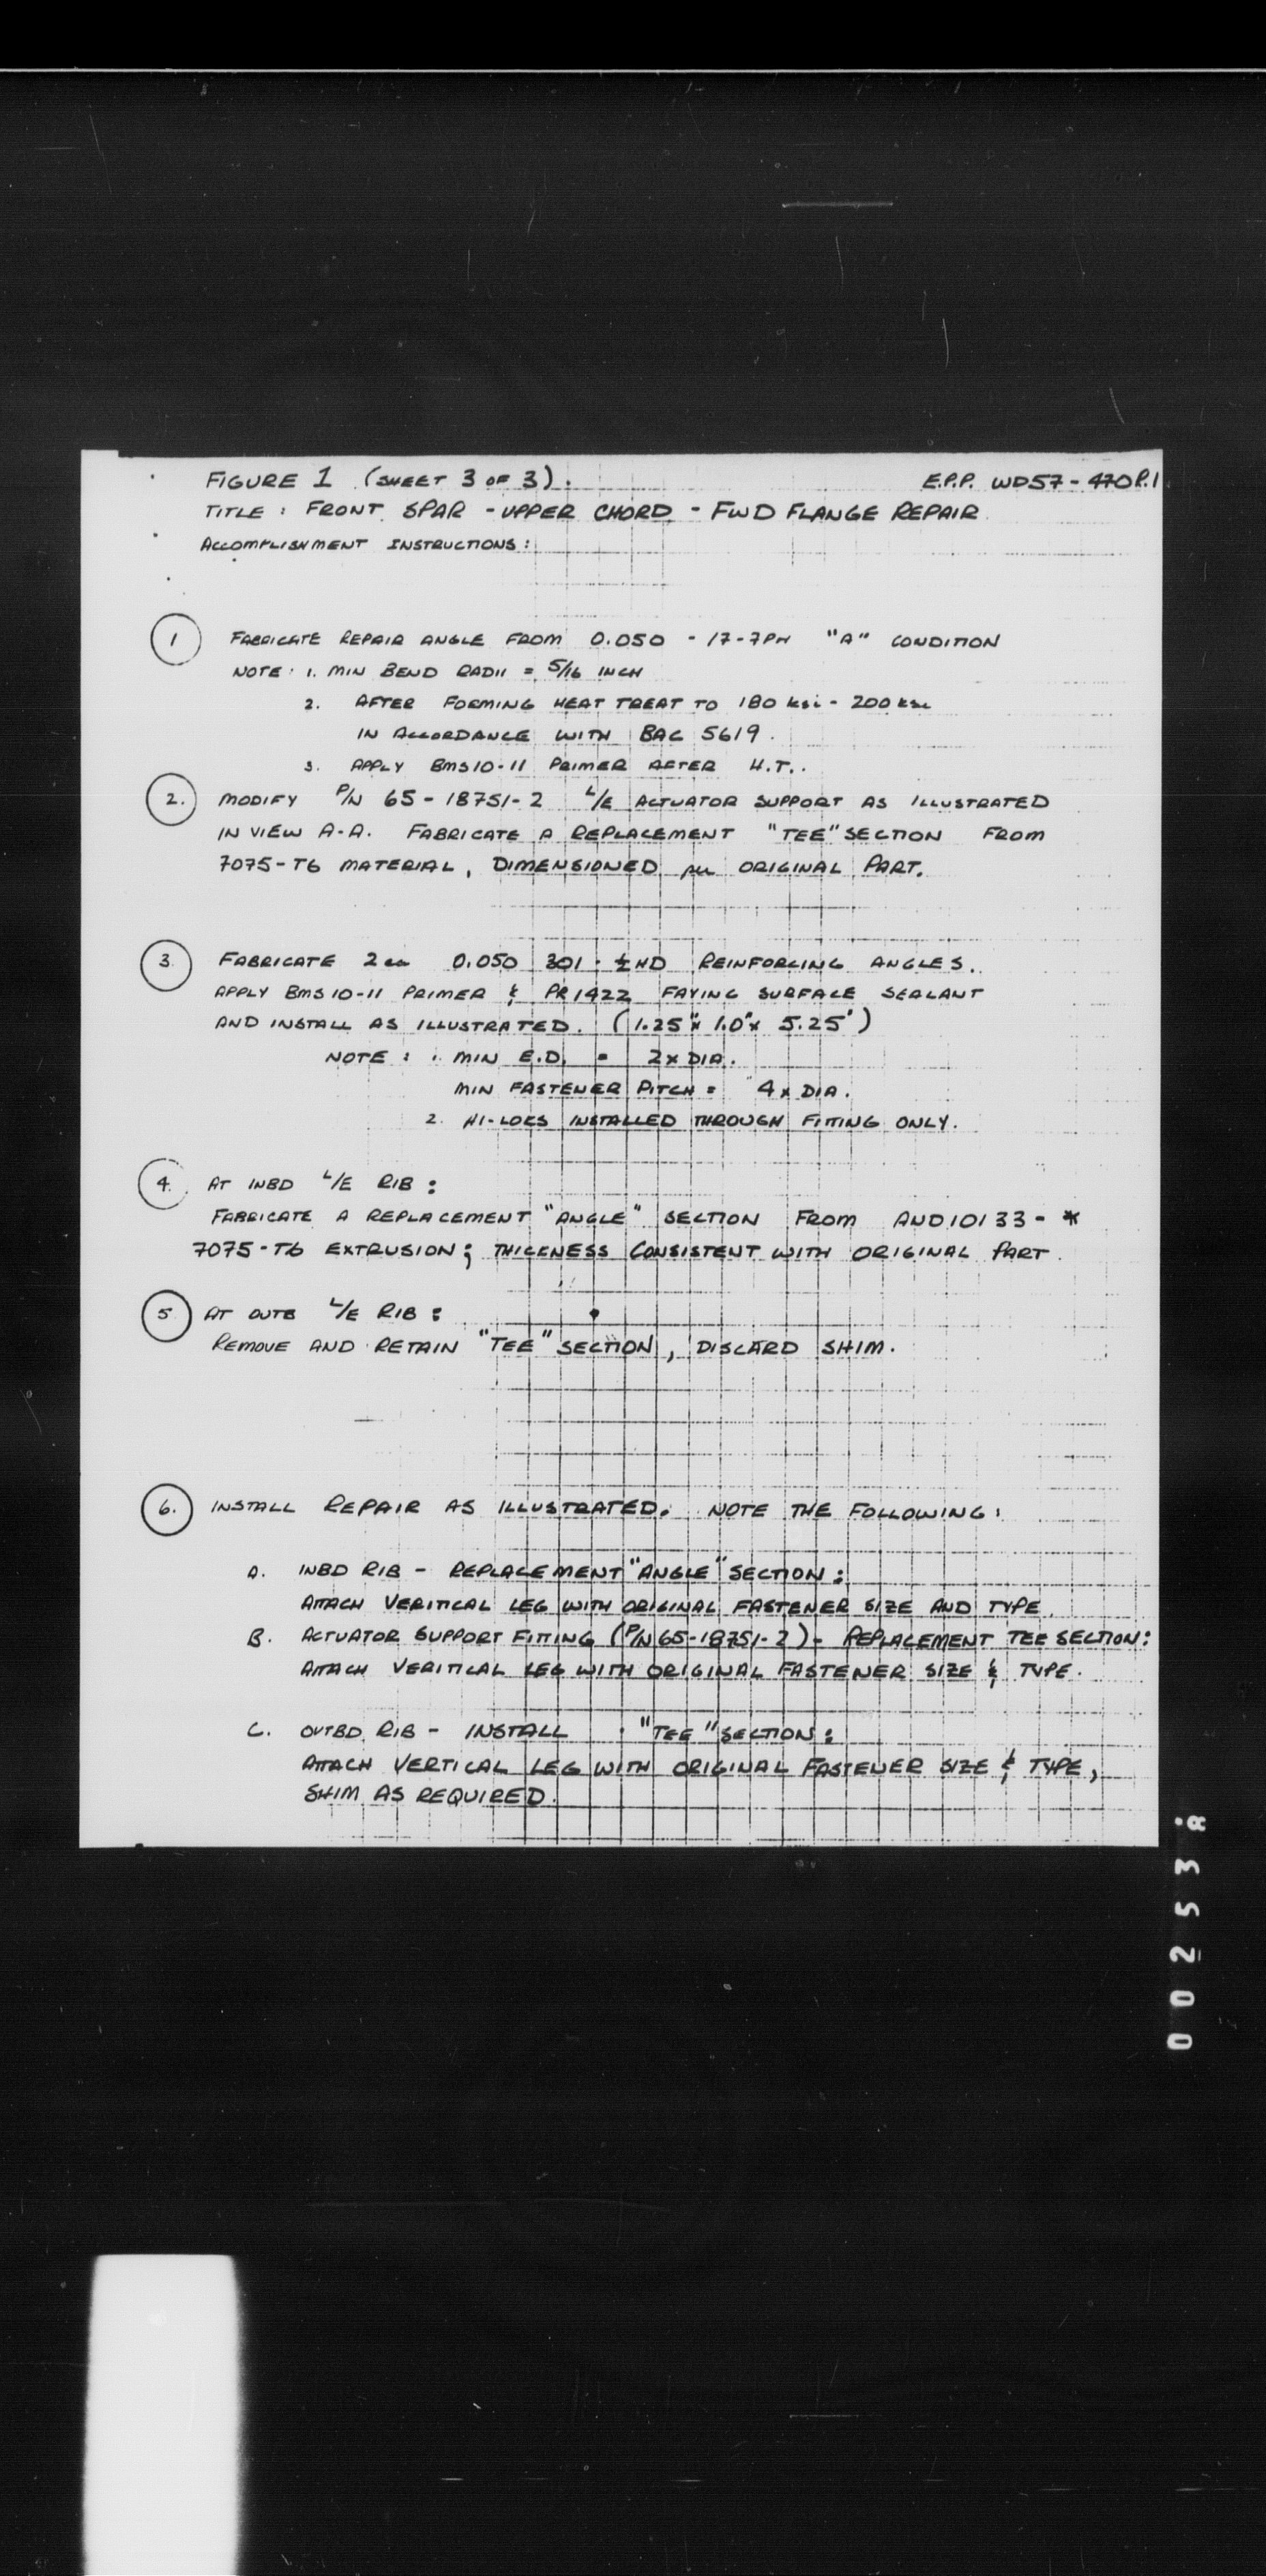 FIGURE 1 (SHEET 3 OF 3). E.P.P. WD57-470P.1
TITLE: FRONT SPAR - UPPER CHORD - FWD FLANGE REPAIR
ACCOMPLISHMENT INSTRUCTIONS:
1 FABRICATE REPAIR ANGLE FROM 0.050 - 17-7PH "A" CONDITION
NOTE: 1. MIN BEND RADII = 5/16 INCH
2. AFTER FORMING HEAT TREAT TO 180 ksi - 200 ksi
IN ACCORDANCE WITH BAC 5619.
3. APPLY BMS10-11 PRIMER AFTER H.T..
2. MODIFY P/N 65-18751-2 L/E ACTUATOR SUPPORT AS ILLUSTRATED
IN VIEW A-A. FABRICATE A REPLACEMENT "TEE" SECTION FROM
7075-T6 MATERIAL, DIMENSIONED per ORIGINAL PART.
3 FABRICATE 2 ea 0.050 301 - ½ HD REINFORCING ANGLES.
APPLY BMS10-11 PRIMER & PR1422 FAYING SURFACE SEALANT
AND INSTALL AS ILLUSTRATED. (1.25" x 1.0" x 5.25")
NOTE: 1. MIN E.D. = 2 x DIA.
MIN FASTENER PITCH = 4 x DIA.
2. HI-LOKS INSTALLED THROUGH FITTING ONLY.
4. AT INBD L/E RIB:
FABRICATE A REPLACEMENT "ANGLE" SECTION FROM AND10133-*
7075-T6 EXTRUSION; THICKNESS CONSISTENT WITH ORIGINAL PART.
5 AT OUTB L/E RIB:
REMOVE AND RETAIN "TEE" SECTION, DISCARD SHIM.
6. INSTALL REPAIR AS ILLUSTRATED. NOTE THE FOLLOWING:
A. INBD RIB - REPLACEMENT "ANGLE" SECTION:
ATTACH VERITICAL LEG WITH ORIGINAL FASTENER SIZE AND TYPE.
B. ACTUATOR SUPPORT FITTING (P/N 65-18751-2) - REPLACEMENT TEE SECTION:
ATTACH VERITICAL LEG WITH ORIGINAL FASTENER SIZE & TYPE.
C. OUTBD RIB - INSTALL "TEE" SECTION:
ATTACH VERTICAL LEG WITH ORIGINAL FASTENER SIZE & TYPE,
SHIM AS REQUIRED.
002538